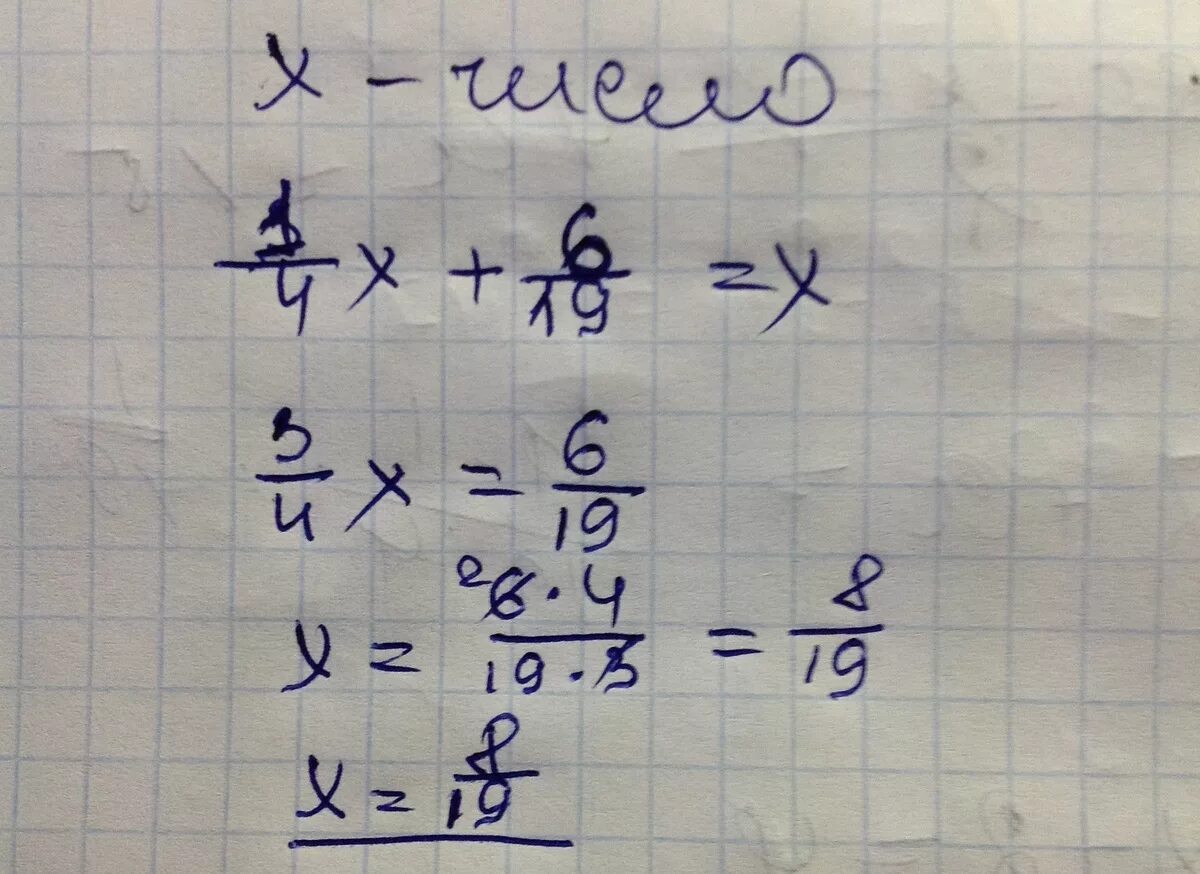 x - число
1/4 x + 6/19 = x
3/4 x = 6/19
x = ²6·4/19·3 = 8/19
x = 8/19